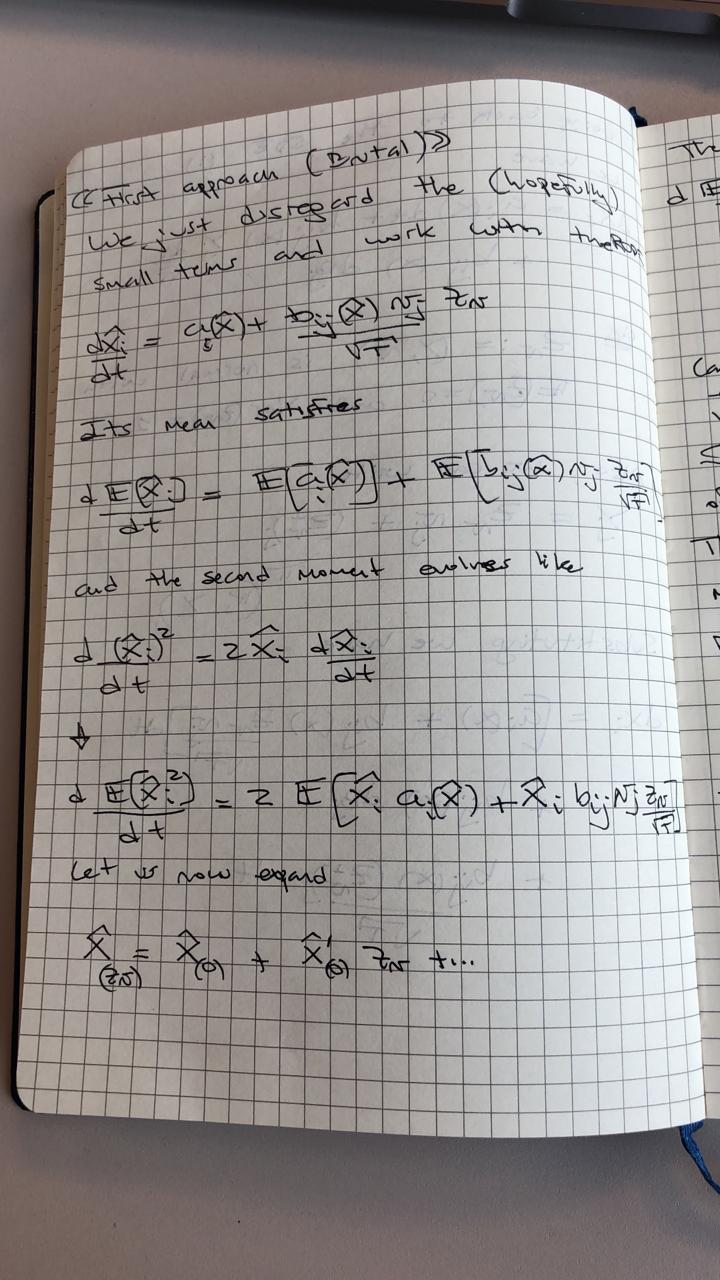 « First approach (Brutal) »
We just disregard the (hopefully)
small terms and work with
dX̂_i/dt = a_i(X̂) + b_ij(X̂) N_j/√T Z_N
Its mean satisfies
d E[X̂_i]/dt = E[a_i(X̂)] + E[b_ij(X̂) N_j Z_N/√T]
and the second moment evolves like
d (X̂_i)²/dt = 2 X̂_i dX̂_i/dt
↓
d E[X̂_i²]/dt = 2 E[X̂_i a_i(X̂) + X̂_i b_ij N_j Z_N/√T]
Let us now expand
X̂(Z_N) = X̂(0) + X̂'(0) Z_N + ...
The
d E
Ca